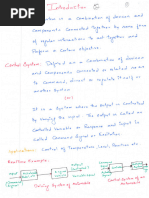 Introduction
is a Combination of devices and
Components Connected together by some form
of regular interaction to act together and
Perform a Certain objective.
Control System: Defined as a Combination of devices
and Components Connected or related so as
to Command, direct or regulate itself or
another System
(or)
It is a System where the output is Controlled
by varying the input. The output is Called
Controlled Variable or Response and Input is
Called Command Signal or Excitation.
Control of Temperature, level, Position etc
Realtime Example:
Driving System of Automobile
Control System of an
Automobile